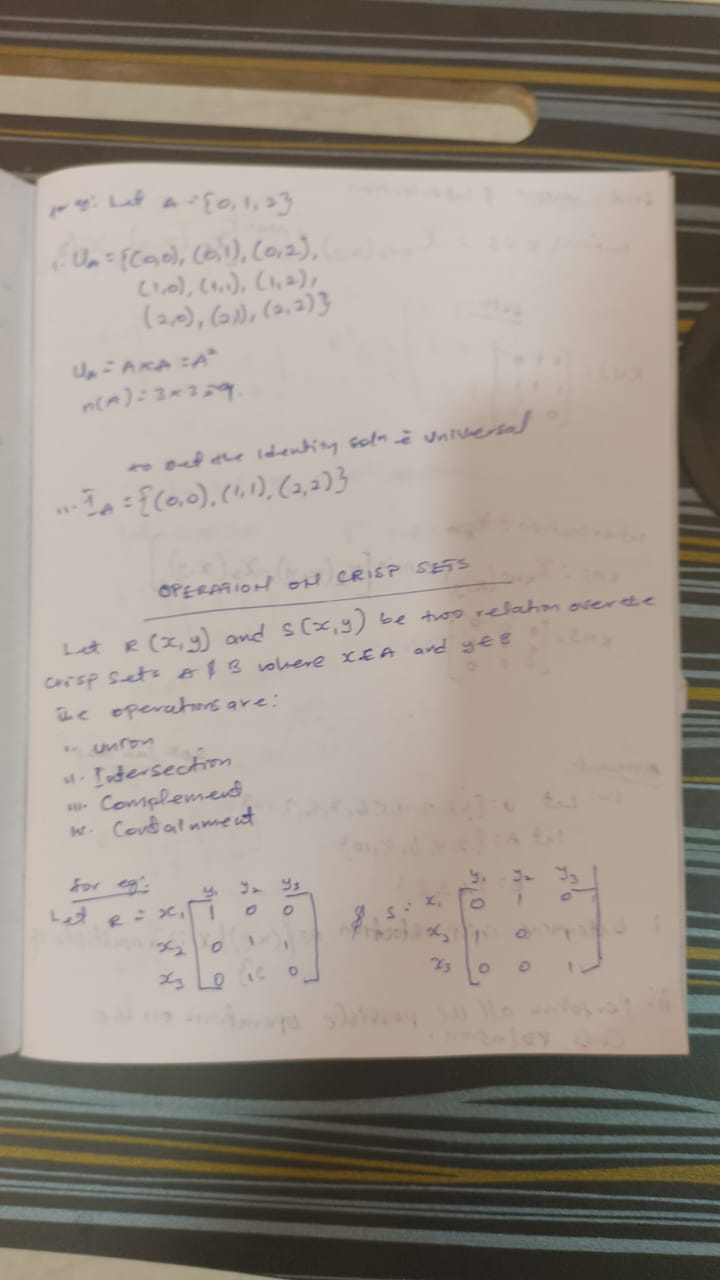 for eg: Let A = {0, 1, 2}
∴ U_A = {(0,0), (0,1), (0,2),
(1,0), (1,1), (1,2),
(2,0), (2,1), (2,2)}
U_A = A×A = A²
n(A) = 3×3 = 9.
to get the identity soln universal
I_A = {(0,0), (1,1), (2,2)}
OPERATION ON CRISP SETS
Let R(x,y) and S(x,y) be two relation over the
crisp sets A & B where x∈A and y∈B
The operations are:
i. union
ii. Intersection
iii. Complement
iv. Containment
for eg:
y₁ y₂ y₃ y₁ y₂ y₃
Let R = x₁ [1 0 0] & S = x₁ [0 1 0]
x₂ [0 1 1] x₂ [1 0 1]
x₃ [0 1 0] x₃ [0 0 1]